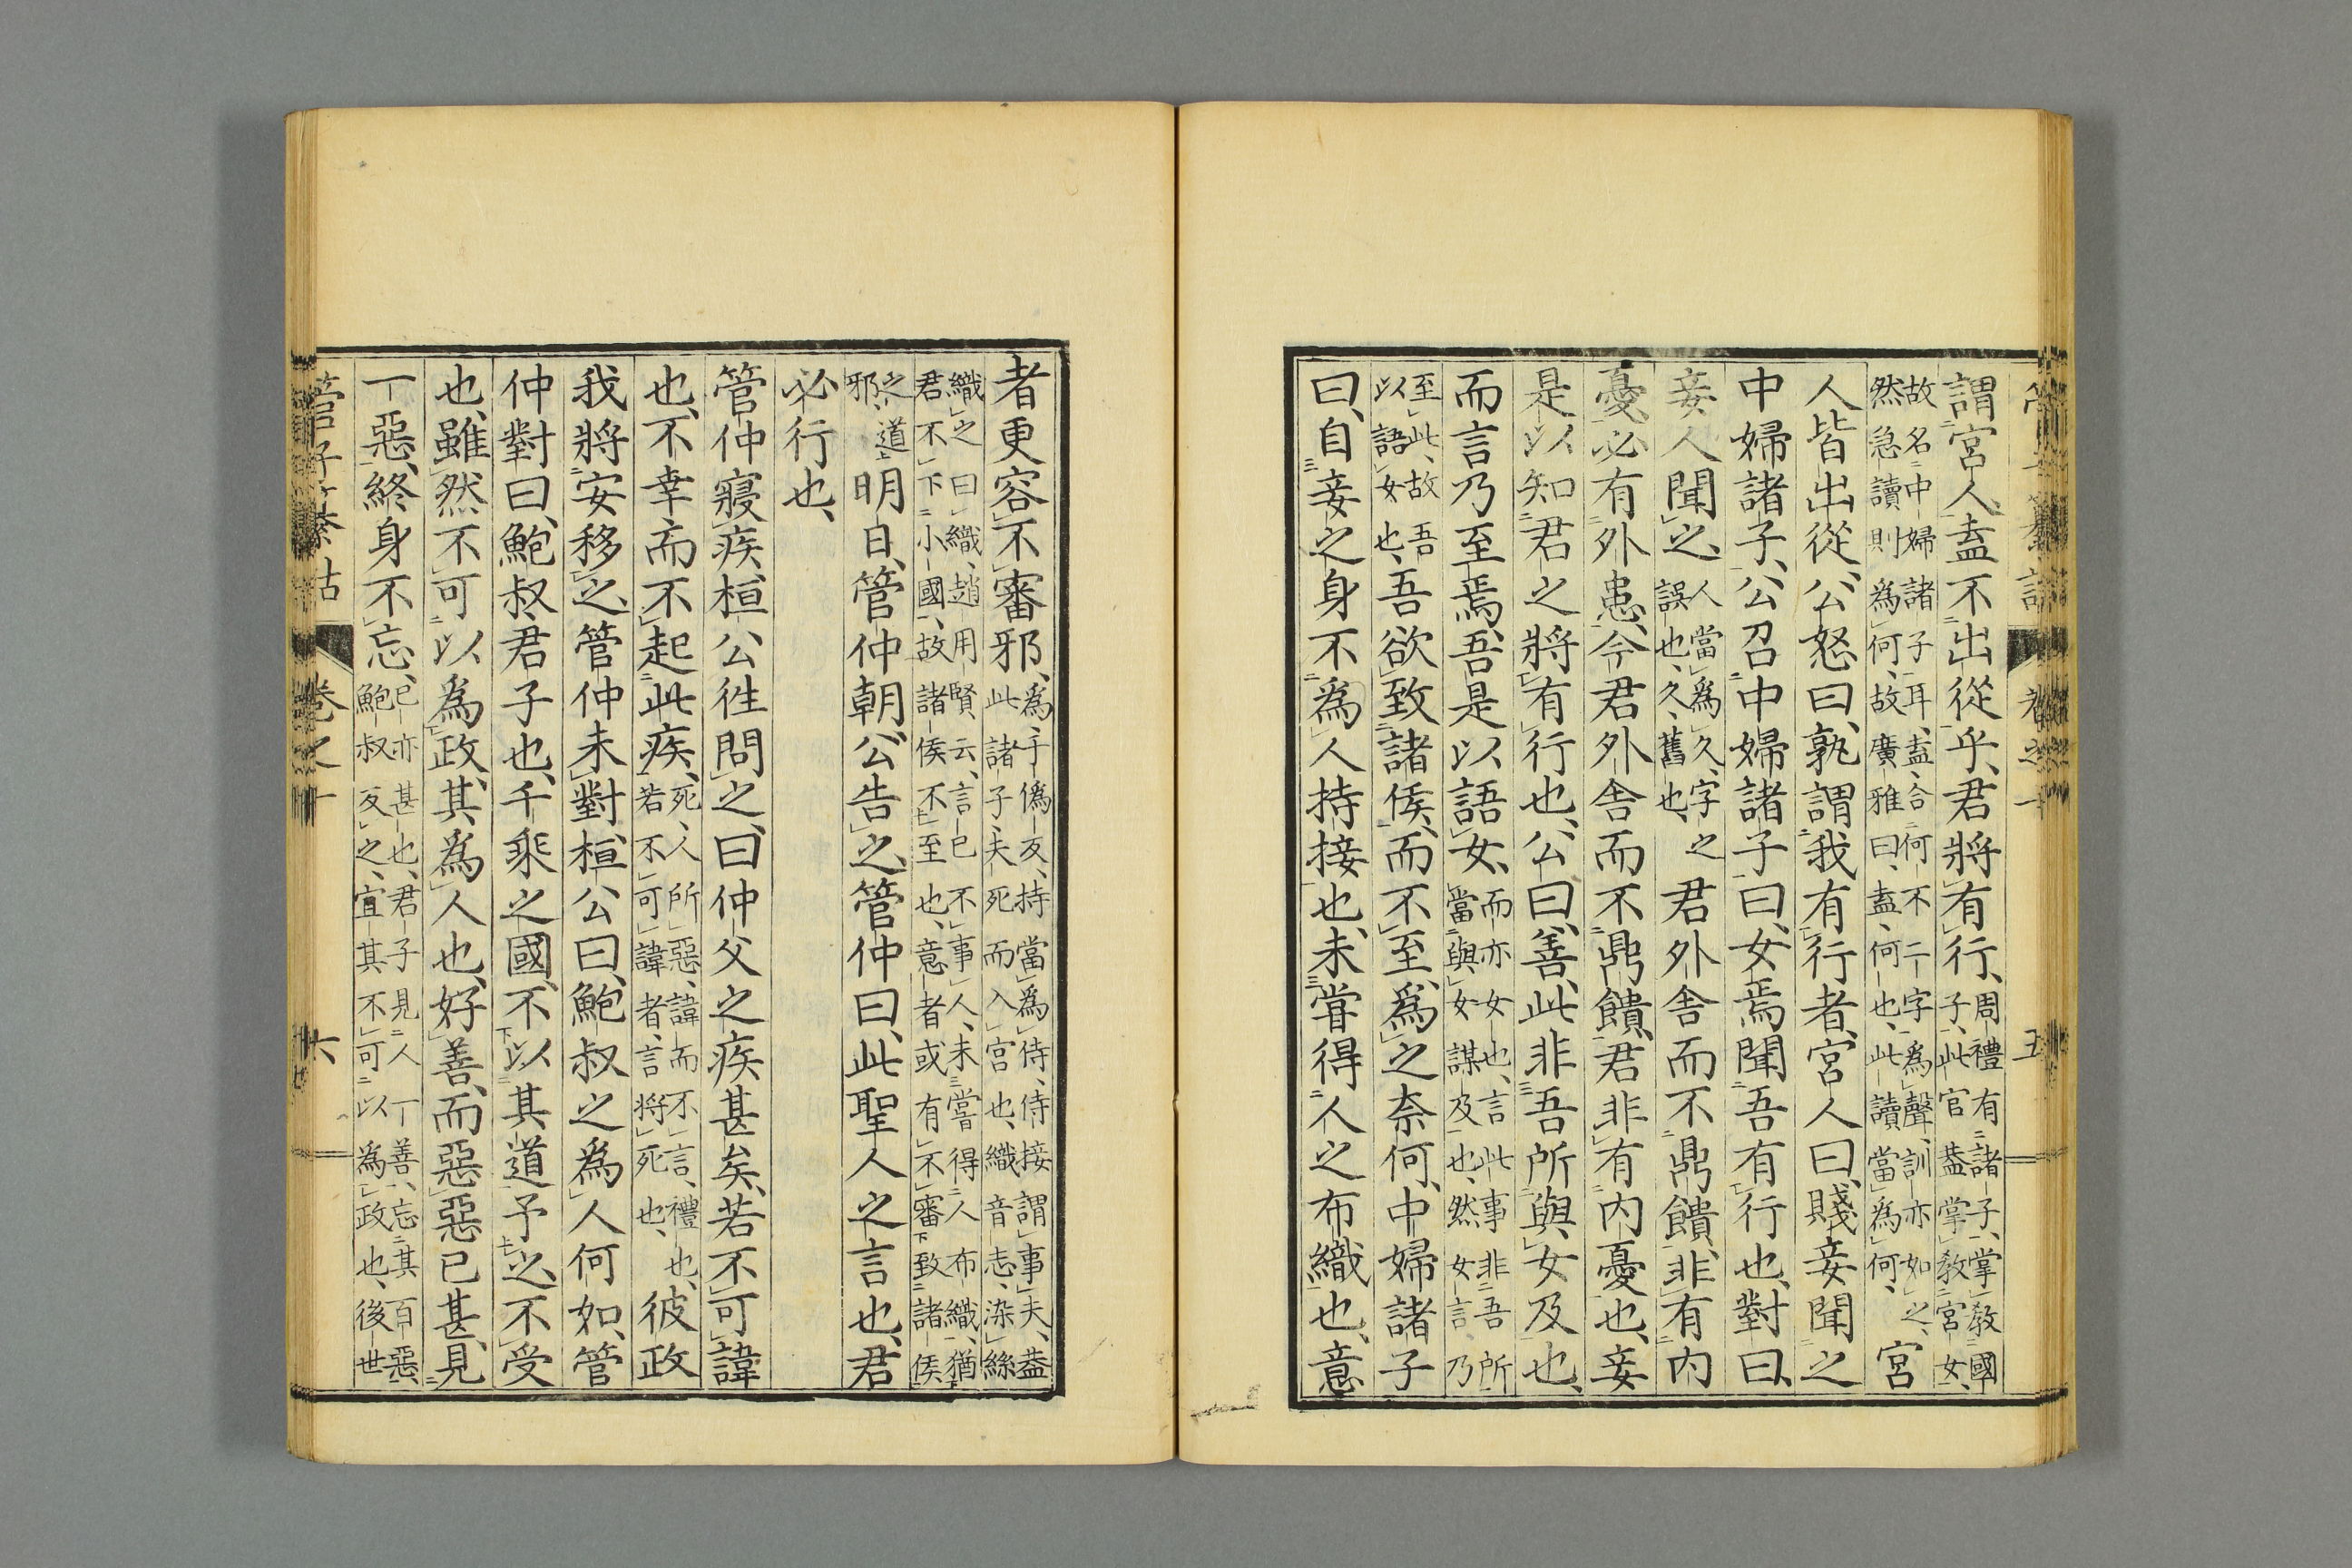 謂宮人、盍不出從乎、君將有行、周禮有諸子、掌教國子、此官葢掌教宮女、
故名中婦諸子耳、盍、合何不二字爲聲、訓亦如之、然急讀則爲何、故廣雅曰、盍、何也、此讀當爲何、宮
人皆出從、公怒曰、孰謂我有行者、宮人曰、賤妾聞之
中婦諸子、公召中婦諸子曰、女焉聞吾有行也、對曰、
妾人聞之、人當爲久、字之誤也、久、舊也、君外舍而不鼎饋、非有内
憂、必有外患、今君外舍而不鼎饋、君非有内憂也、妾
是以知君之將有行也、公曰、善、此非吾所與女及也、
而言乃至焉、吾是以語女、而亦女也、言此事非吾所當與女謀及也、然女言乃
至此、故吾以語女也、吾欲致諸侯、而不至、爲之奈何、中婦諸子
曰、自妾之身不爲人持接也、未嘗得人之布織也、意
者更容不審邪、爲、于僞反、持當爲侍、侍接謂事夫、葢此諸子、夫死而入宮也、織音志、染絲
織之曰織、趙用賢云、言已不事人、未嘗得人布織、猶君不下小國、故諸侯不至也、意者或有不審致諸侯
之道邪、明日、管仲朝、公告之、管仲曰、此聖人之言也、君
必行也、
管仲寢疾、桓公徃問之、曰仲父之疾甚矣、若不可諱
也、不幸而不起此疾、死、人所惡、諱而不言、禮也、若不可諱者、言將死也、彼政
我將安移之、管仲未對、桓公曰、鮑叔之爲人何如、管
仲對曰、鮑叔君子也、千乘之國、不以其道予之、不受
也、雖然不可以爲政、其爲人也、好善、而惡惡已甚、見
一惡、終身不忘、已亦甚也、君子見人一善、忘其百惡、鮑叔反之、宜其不可以爲政也、後世
管子纂詁　卷之十　六
管子纂詁　卷之十　五